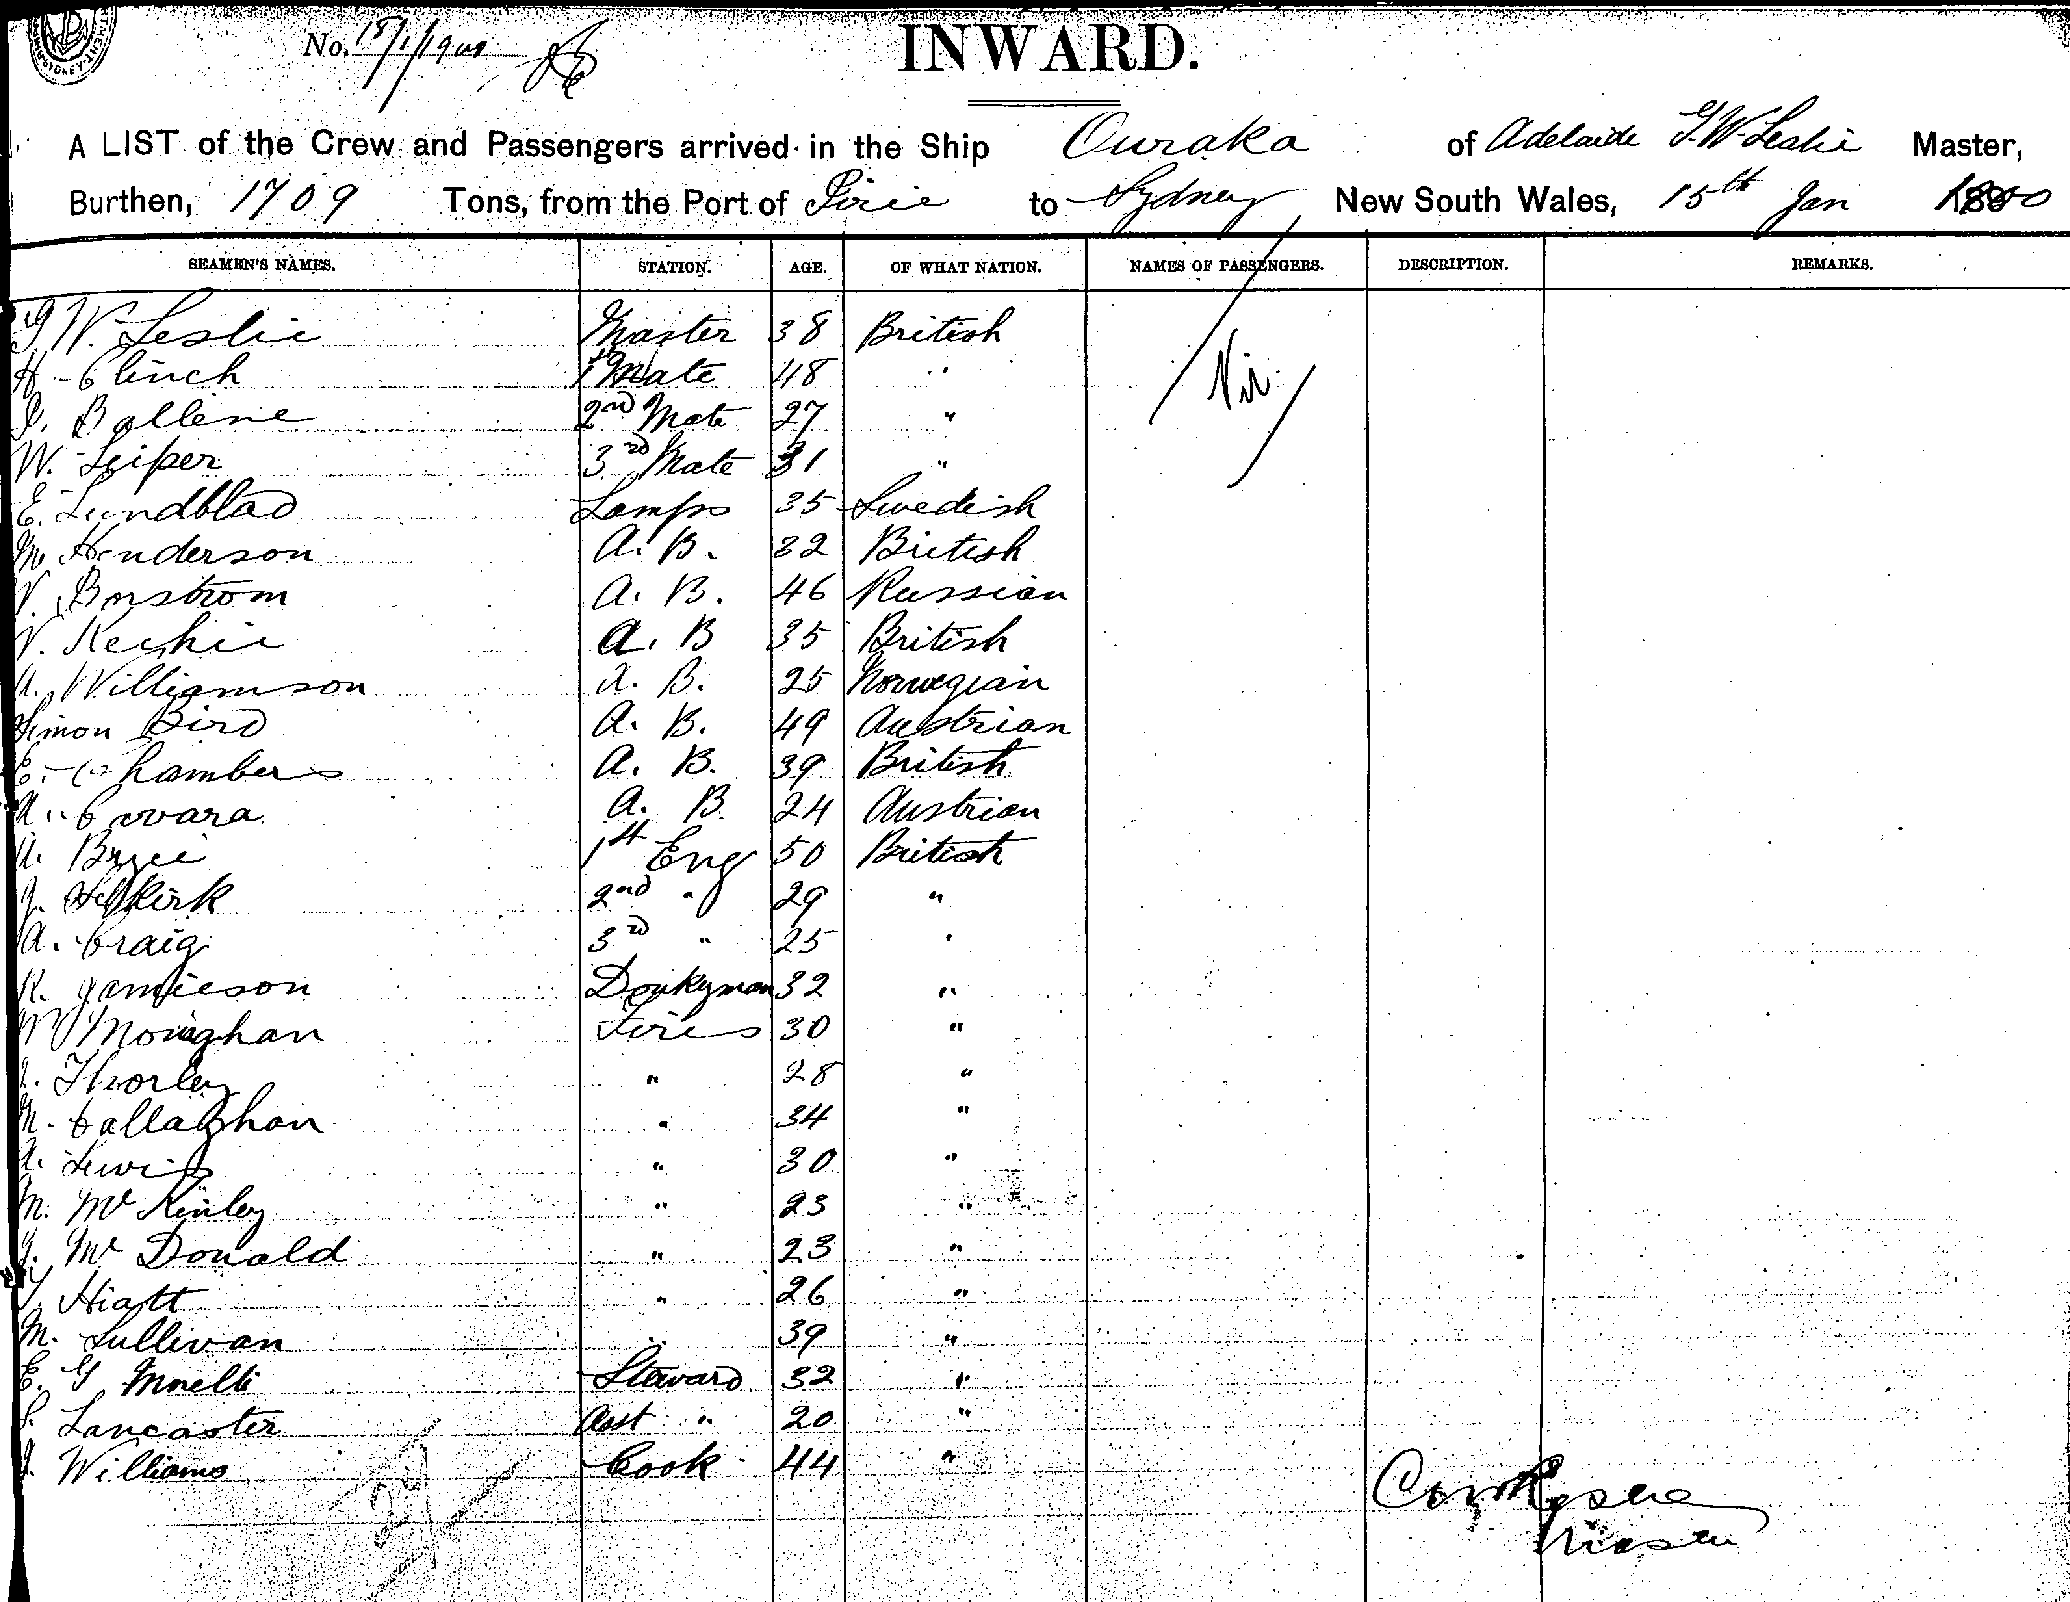 No. 18/1/1900
INWARD.
A LIST of the Crew and Passengers arrived in the Ship Ouraka of Adelaide G. W. Leslie Master,
Burthen, 1709 Tons, from the Port of Pirie to Sydney New South Wales, 15th Jan 1900
SEAMEN'S NAMES. STATION. AGE. OF WHAT NATION. NAMES OF PASSENGERS. DESCRIPTION. REMARKS.
G W. Leslie Master 38 British
H. Clinch 1st Mate 48 " Nil
Ballene 2nd Mate 27 "
W. Leiper 3rd Mate 31 "
E. Lundblad Lamps 35 Swedish
M Henderson A. B. 32 British
V. Bostrom A. B. 46 Russian
V. Kechie A. B 35 British
A. Williamson A. B. 25 Norwegian
Simon Biro A. B. 49 Austrian
E. Chambers A. B. 39 British
A. Covara A. B. 24 Austrian
A. 1st Eng 50 British
J. Selkirk 2nd " 29 "
A. Craig 3rd " 25 "
R. Jamieson Donkyman 32 "
W Monaghan Fires 30 "
J. Thorley " 28 "
M. Callaghan " 34 "
A. Lewis " 30 "
M. Mc Kinley " 23 "
J. Mc Donald " 23 "
Hiatt " 26 "
M. Sullivan " 39 "
E. G Steward 32 "
Lancaster Asst " 20 "
J. Williams Cook 44 "
27